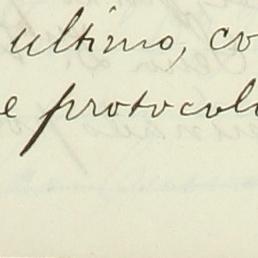 ultimo, co
e protocolo